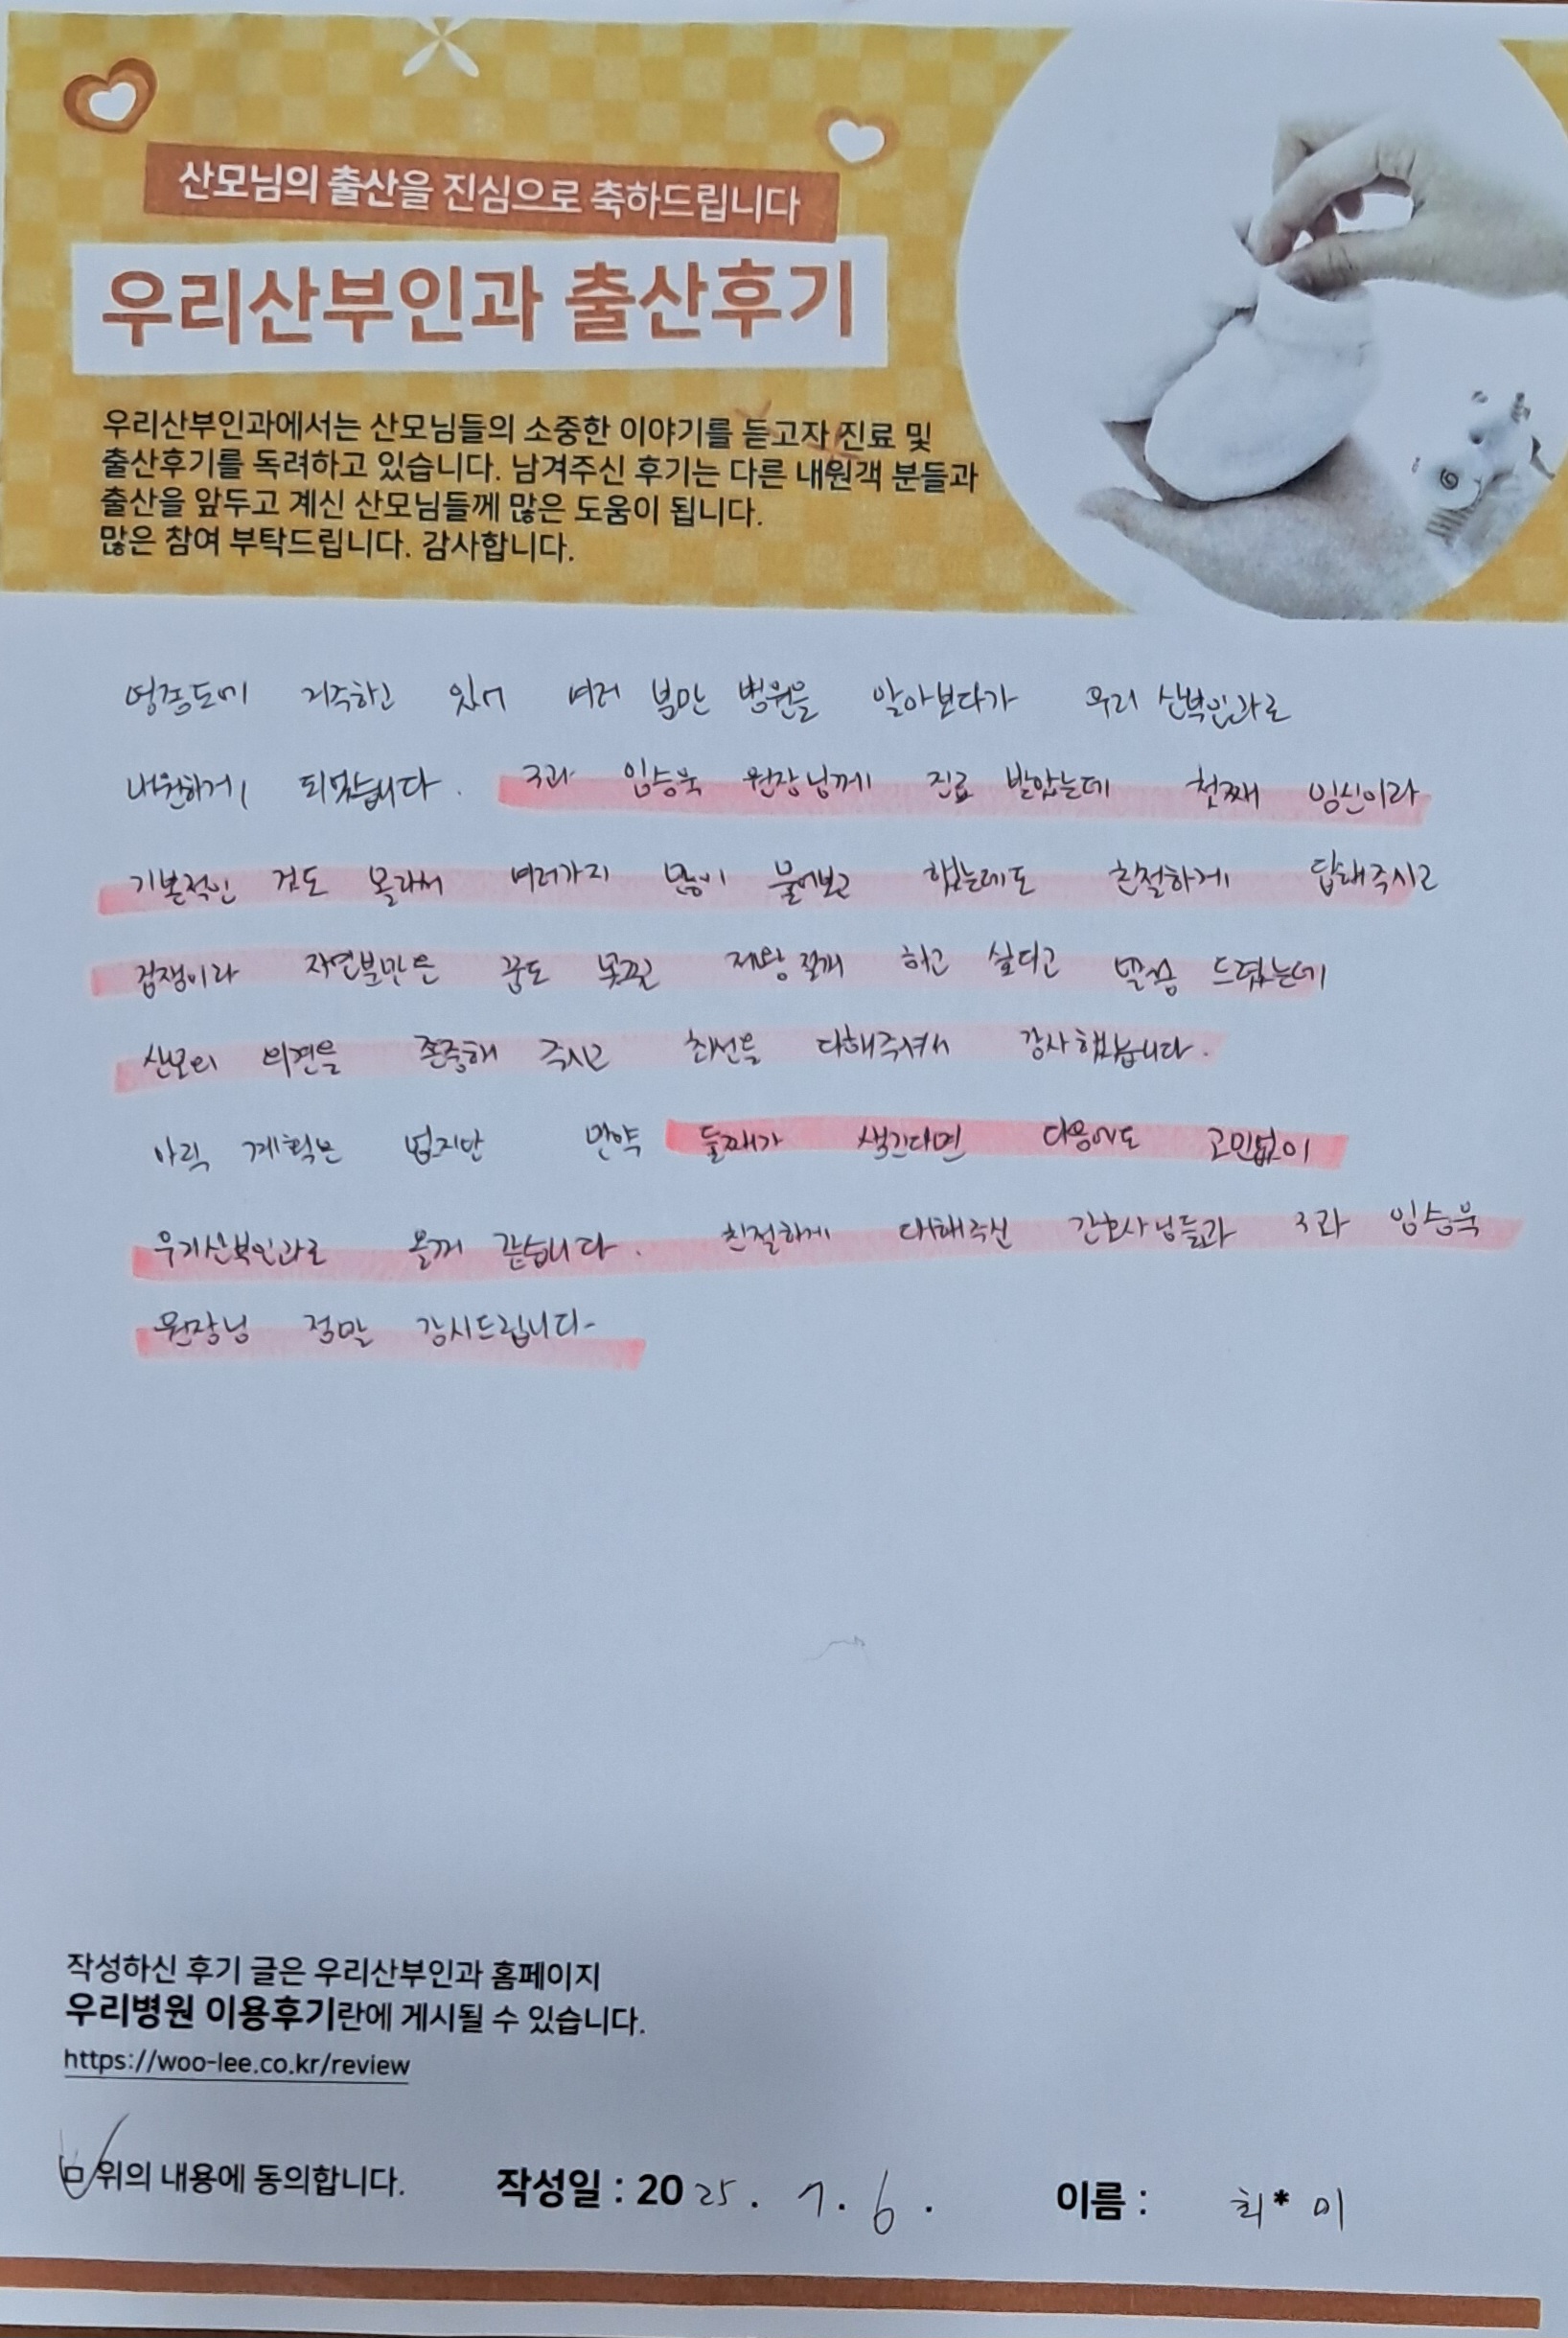 산모님의 출산을 진심으로 축하드립니다
우리산부인과 출산후기
우리산부인과에서는 산모님들의 소중한 이야기를 듣고자 진료 및
출산후기를 독려하고 있습니다. 남겨주신 후기는 다른 내원객 분들과
출산을 앞두고 계신 산모님들께 많은 도움이 됩니다.
많은 참여 부탁드립니다. 감사합니다.
영종도에 거주하고 있어 여러 분만 병원을 알아보다가 우리 산부인과로
내원하게 되었습니다. 3과 임승욱 원장님께 진료 받았는데 첫째 임신이라
기본적인 것도 몰라서 여러가지 많이 물어보고 했는데도 친절하게 답해주시고
겁쟁이라 자연분만은 꿈도 못꾸고 제왕절개 하고 싶다고 말씀 드렸는데
산모의 의견을 존중해 주시고 최선을 다해주셔서 감사했습니다.
아직 계획은 없지만 만약 둘째가 생긴다면 다음에도 고민없이
우리산부인과로 올꺼 같습니다. 친절하게 대해주신 간호사님들과 3과 임승욱
원장님 정말 감사드립니다-
작성하신 후기 글은 우리산부인과 홈페이지
우리병원 이용후기란에 게시될 수 있습니다.
https://woo-lee.co.kr/review
위의 내용에 동의합니다. 작성일 : 2025. 7. 6. 이름 : 최*미